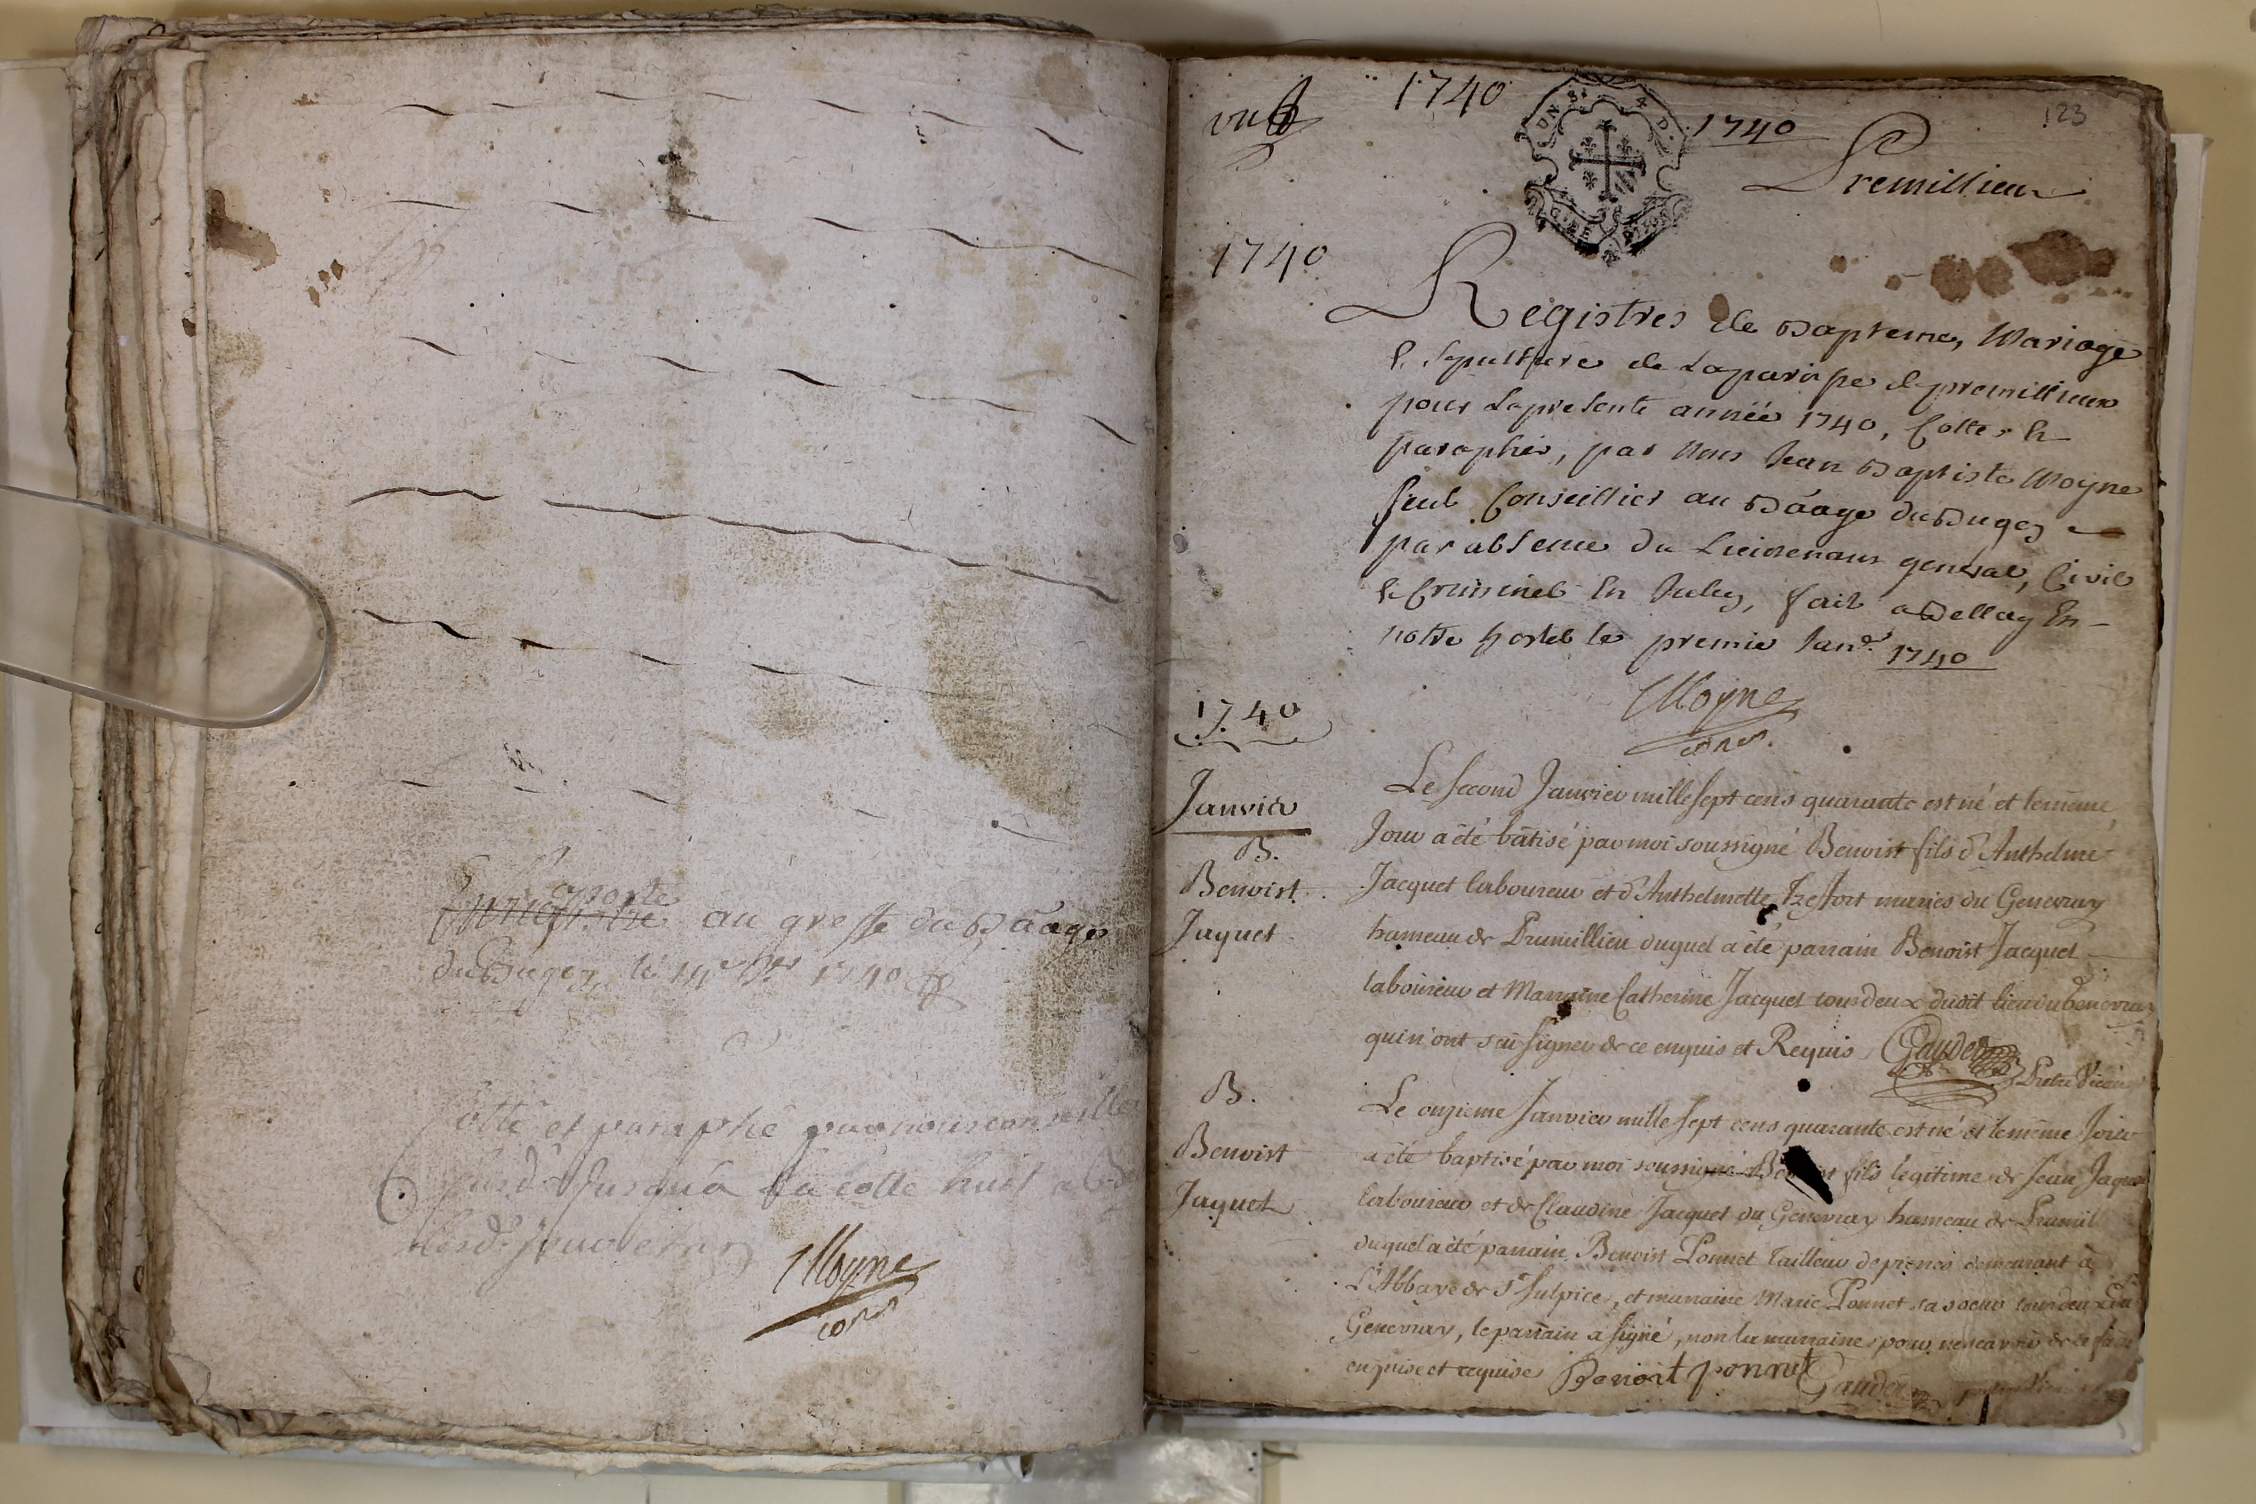 apporté
au greffe du Baage
du Bugey le 14e 1740
Cotté et paraphé par nous conseiller
susd. jusqu'à la cotte huit
Moyne
cons.
vu
1740
1740
Premillieu
123
1740
Registres de Bapteme, Mariage
& Sepulture de La paroisse de premillieux
pour La presente année 1740, Cottes &
paraphés, par Nous Jean Baptiste Moyne
seul Conseillier au Baage du Bugey
par absence du Lieutenant general, Civil
& Criminel En Iceluy, fait a Bellay En
notre hostel le premie Janv. 1740
Moyne
cons.
1740
Janvier
B.
Benoist
Jaquet
Le second Janvier mille sept cens quarante est né et le même
Jour a été batisé par moi soussigné Benoist fils d'Anthelme
Jacquet laboureur et d'Anthelmette Trefort mariés du Genevray
hameau de Prumillieu duquel a été parrain Benoist Jacquet
laboureur et Marraine Catherine Jacquet tous deux dudit lieu du Genevray
qui n'ont sçu signer de ce enquis et Requis Gaudet
Pretre Vicaire
B.
Benoist
Jaquet
Le onzieme Janvier mille sept cens quarante est né et le même Jour
a été baptisé par moi soussigné Benoist fils légitime de Jean Jaquet
laboureur et de Claudine Jacquet du Genevray hameau de Prumil
duquel a été parrain Benoist Ponnet tailleur de pierres demeurant à
L'Abbaye de St Sulpice, et marraine Marie Ponnet sa soeur tous deux du
Genevray, le parrain a signé, non la marraine pour ne sçavoir de ce faire
enquise et requise Benoit ponnet Gaudet